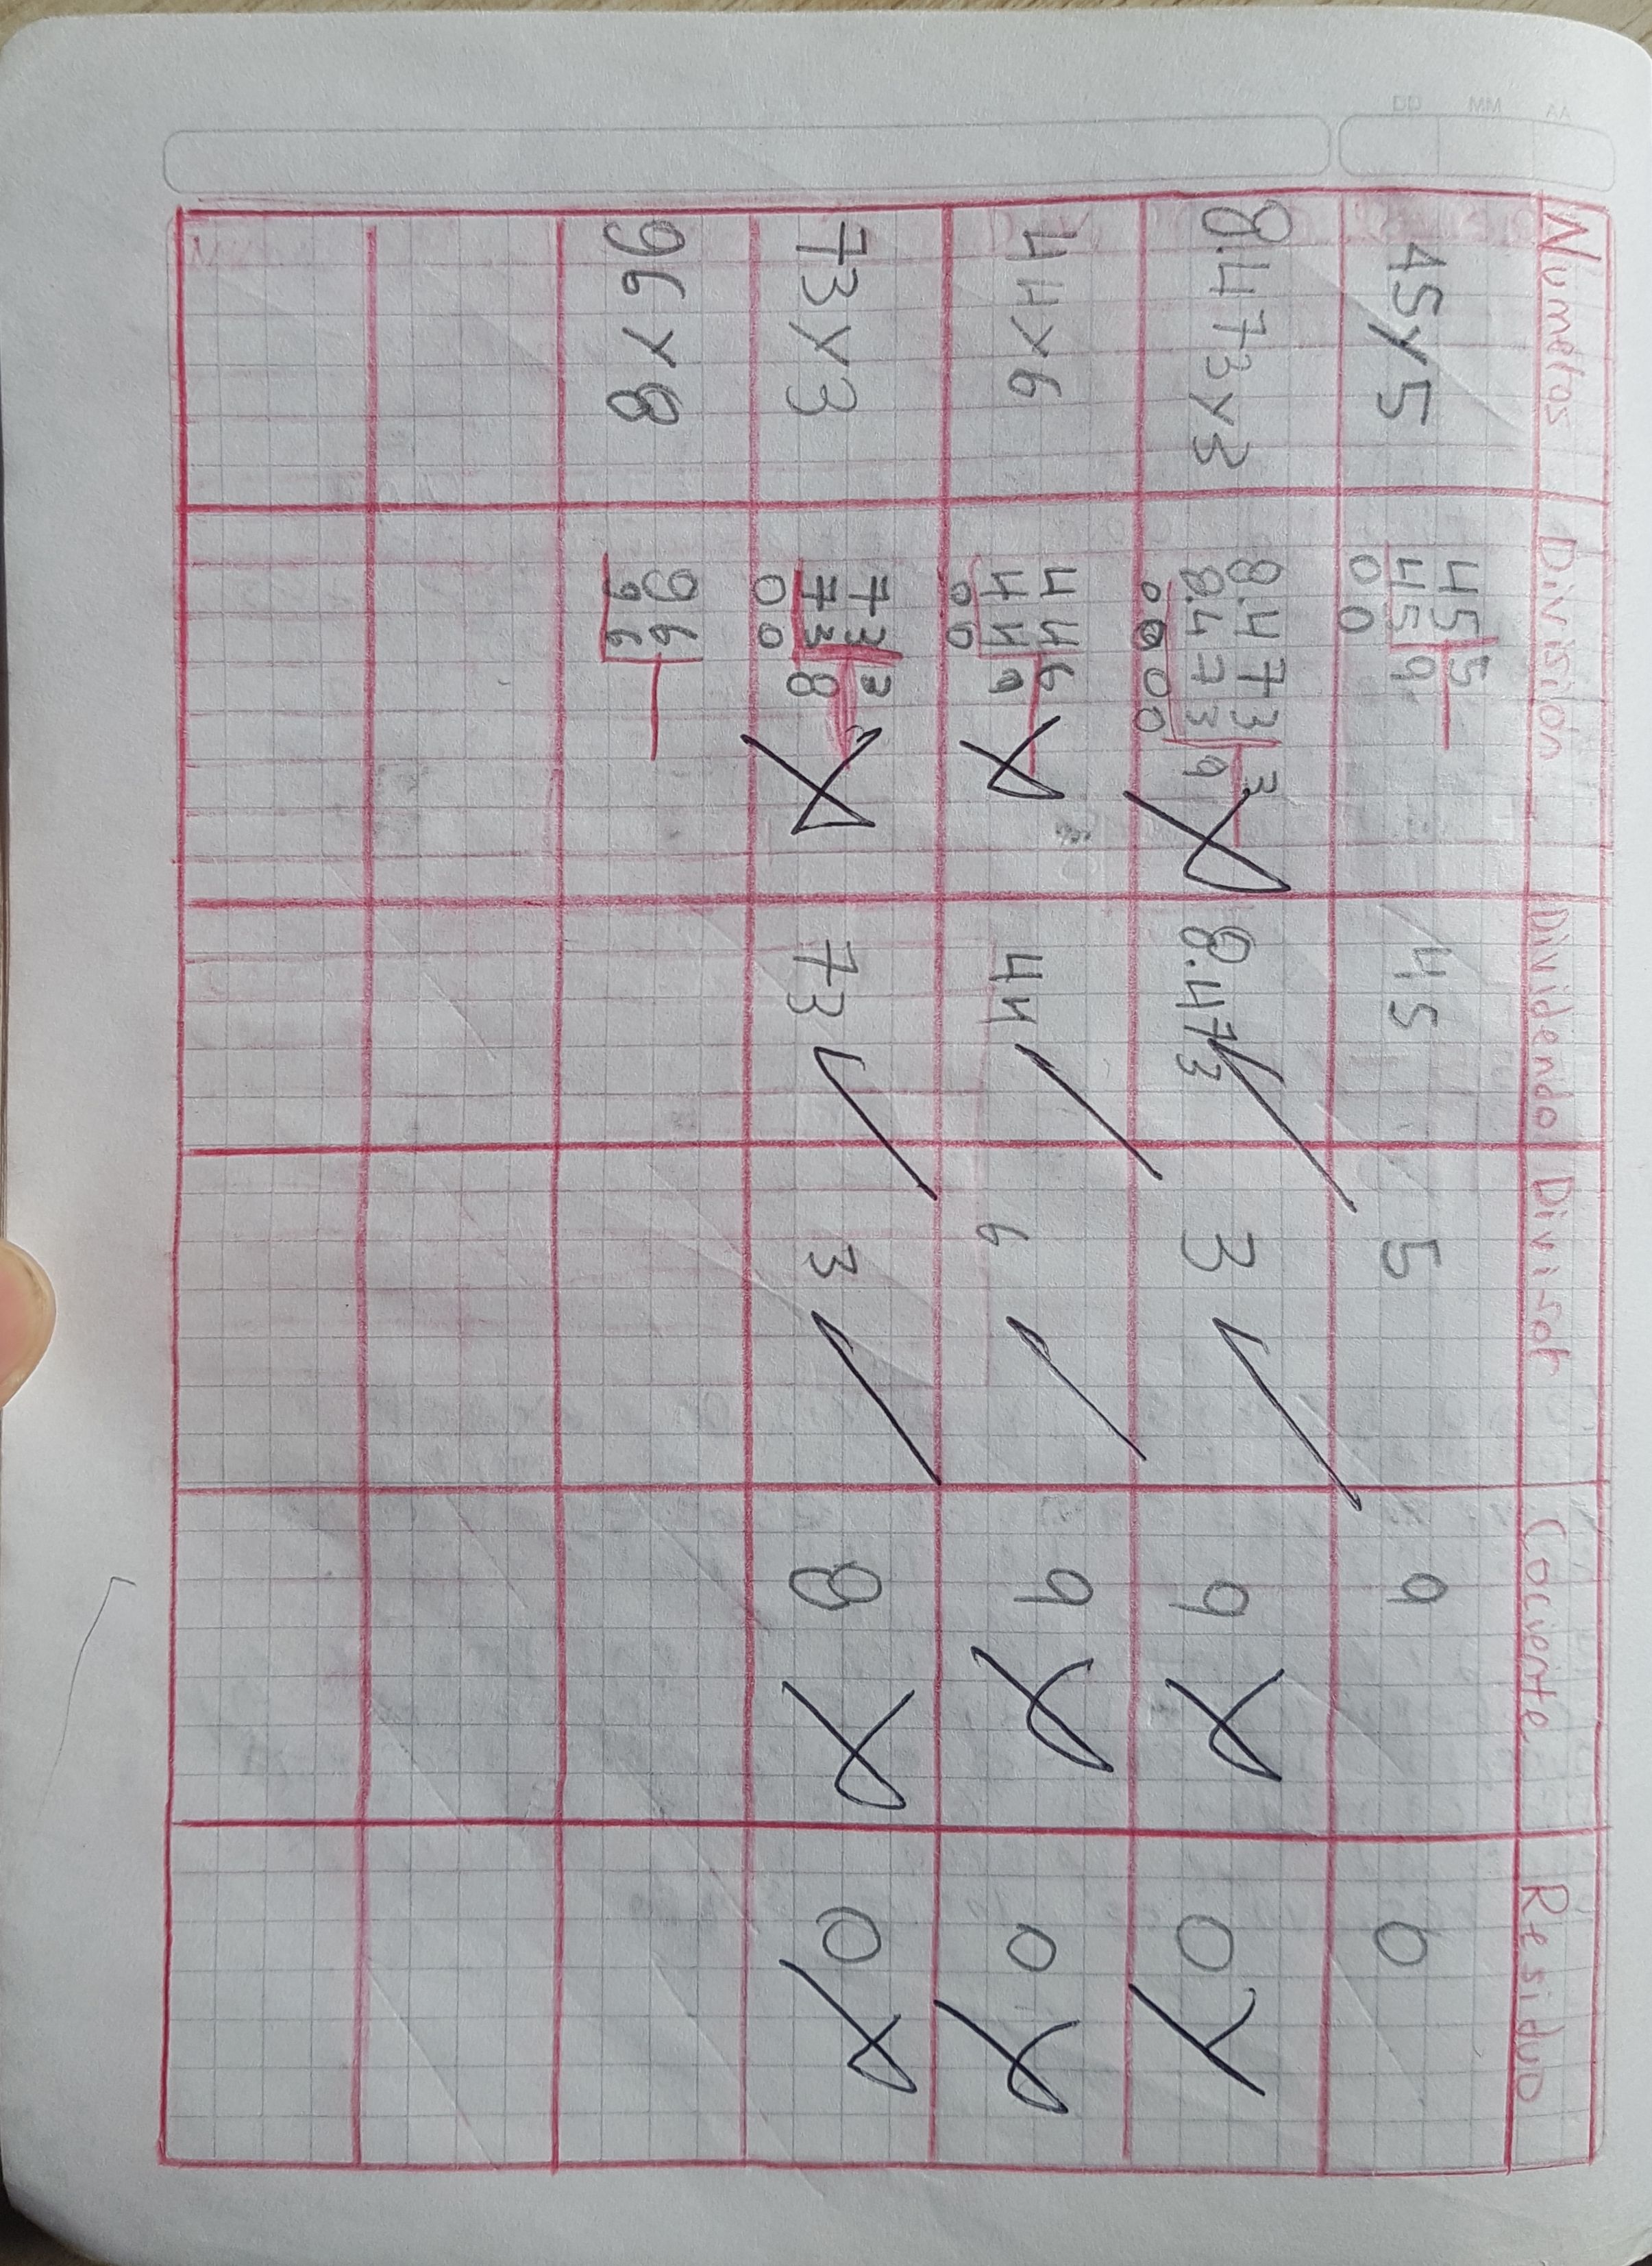 DD MM AA
Numeros División Dividendo Divisor Cociente Residuo
45 y 5
45 5
45 9
00
45 5 9 0
8.473 y 3
8.473 3
8.473 9
0000
8.473 3 9 0
44 y 6
44 6
44 9
00
44 6 9 0
73 y 3
73 3
73 8
00
73 3 8 0
96 y 8
96
96